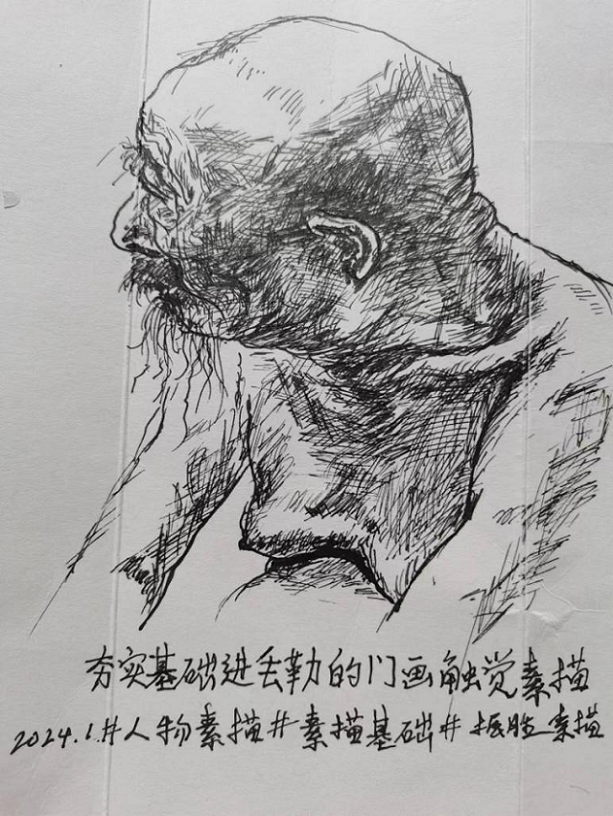 夯实基础进丢勒的门画触觉素描
2024.1.#人物素描#素描基础#振胜素描